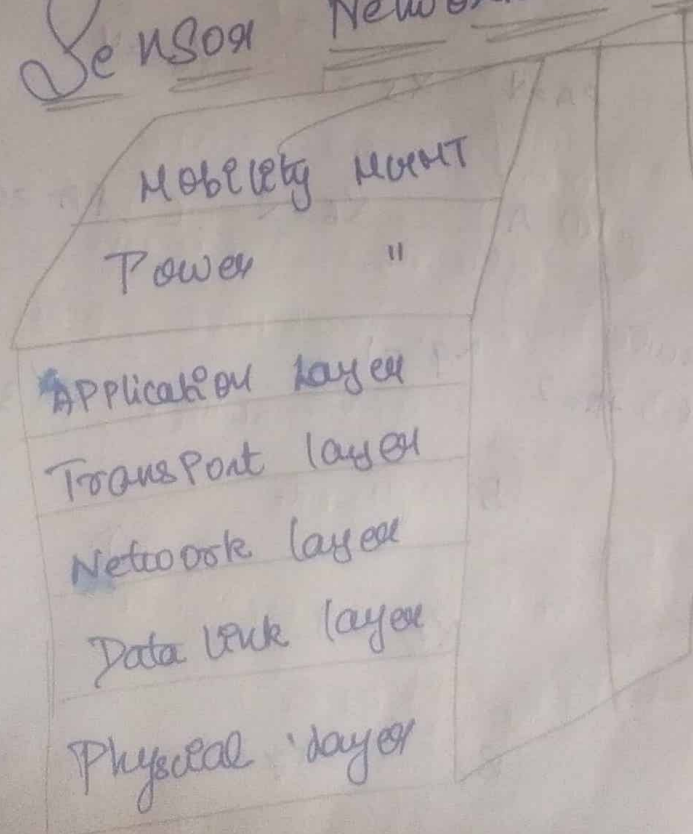 Sensor
Mobility MGMT
Power "
Application Layer
Transport layer
Network layer
Data link layer
Physical Layer